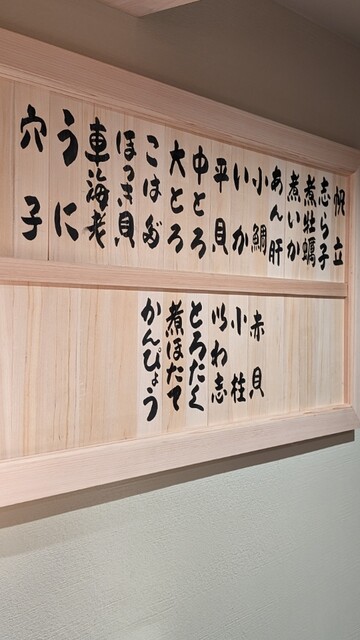 帆立
志ら子
煮牡蠣
煮いか
あん肝
小鯛
いか
平貝
中とろ
大とろ
こはだ
ほっき貝
車海老
うに
穴子
赤貝
小柱
いわ志
とろたく
煮ほたて
かんぴょう